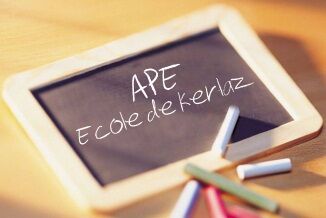 APE
Ecole de kerlaz